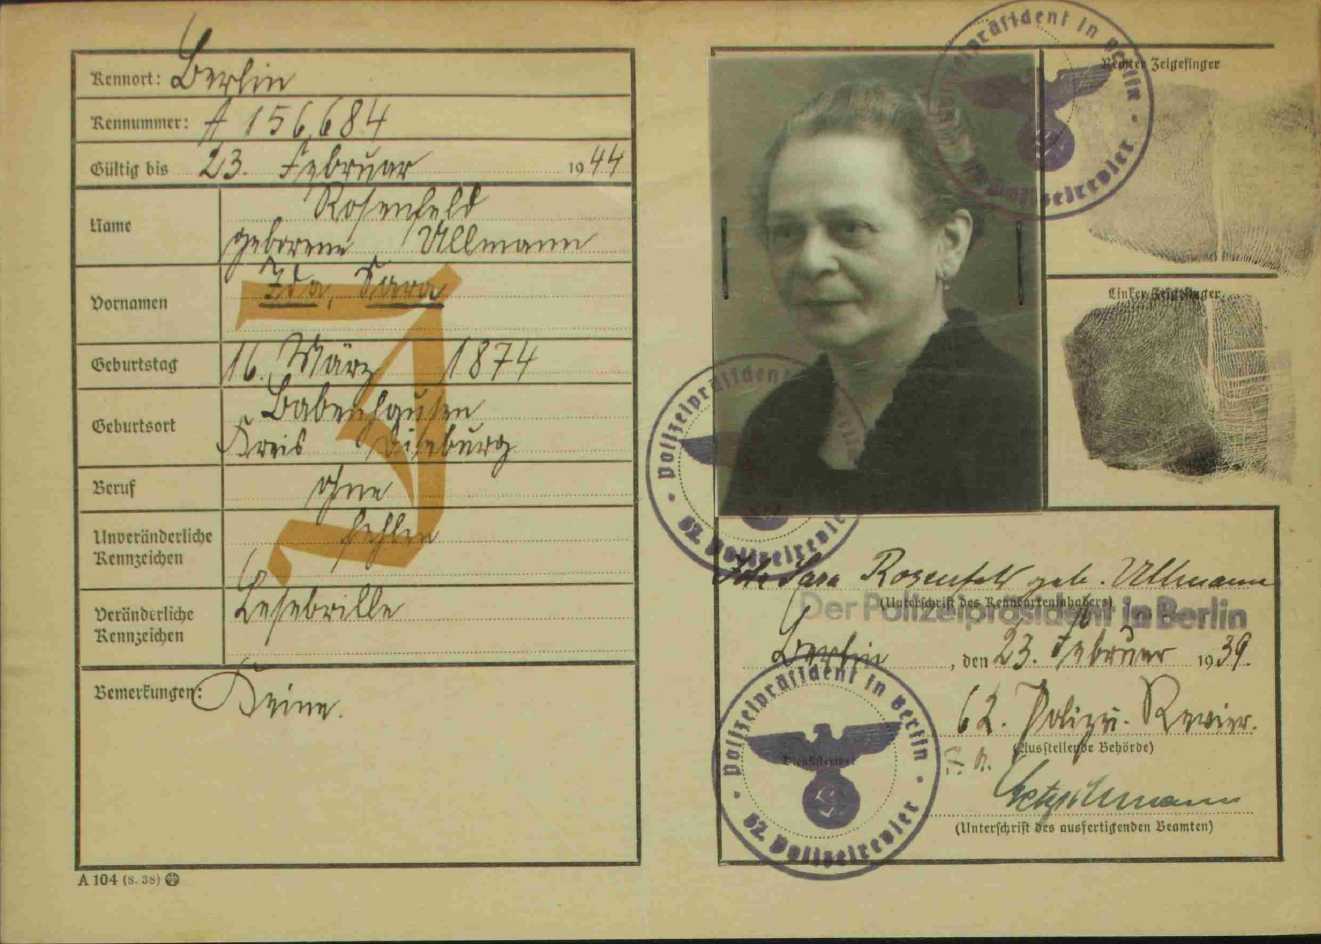 Kennort: Berlin
Kennummer: A 156,684
Gültig bis 23. Februar 1944
Name Rosenfeld
geborene Ullmann
Vornamen Ida, Sara
Geburtstag 16. März 1874
Geburtsort Babenhausen
Kreis Dieburg
Beruf ohne
Unveränderliche
Kennzeichen
fehlen
Veränderliche
Kennzeichen
Lesebrille
Bemerkungen: Keine.
J
A 104 (8. 38)
Polizeipräsident in Berlin
Polizeirevier
Rechter Zeigefinger
Linker Zeigefinger
Polizeipräsident
62. Polizeirevier
Ida Sara Rosenfeld geb. Ullmann
(Unterschrift des Kennkarteninhabers)
Der Polizeipräsident in Berlin
Berlin, den 23. Februar 1939.
62. Polizei-Revier.
(Ausstellende Behörde)
Polizeipräsident in Berlin
62. Polizeirevier
Dienststempel
(Unterschrift des ausfertigenden Beamten)